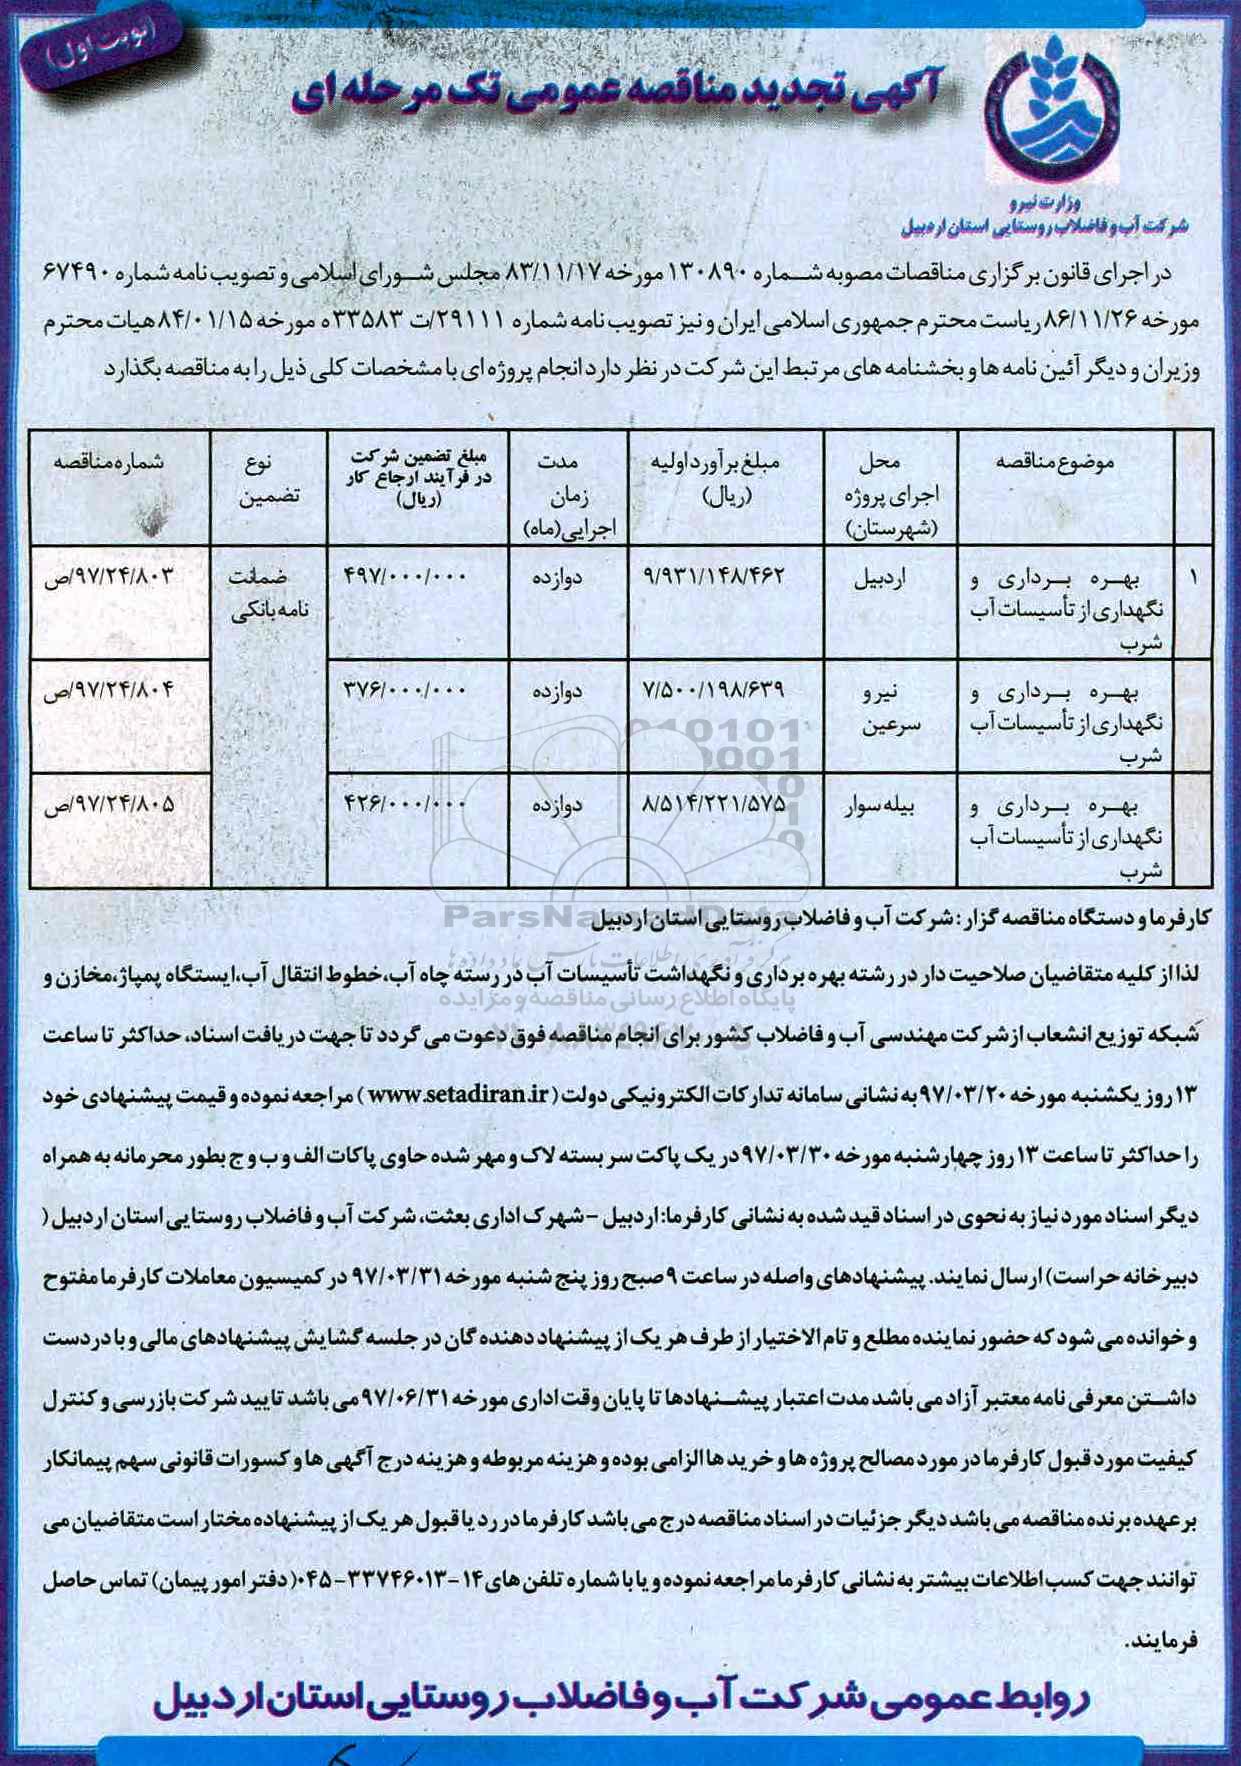 (نوبت اول)
آگهی تجدید مناقصه عمومی تک مرحله ای
وزارت نیرو
شرکت آب و فاضلاب روستایی استان اردبیل
در اجرای قانون برگزاری مناقصات مصوبه شماره ۱۳۰۸۹۰ مورخه ۸۳/۱۱/۱۷ مجلس شورای اسلامی و تصویب نامه شماره ۶۷۴۹۰
مورخه ۸۶/۱۱/۲۶ ریاست محترم جمهوری اسلامی ایران و نیز تصویب نامه شماره ۲۹۱۱۱/ت ۳۳۵۸۳ ه مورخه ۸۴/۰۱/۱۵ هیات محترم
وزیران و دیگر آئین نامه ها و بخشنامه های مرتبط این شرکت در نظر دارد انجام پروژه ای با مشخصات کلی ذیل را به مناقصه بگذارد
موضوع مناقصه
محل
اجرای پروژه
(شهرستان)
مبلغ برآورد اولیه
(ریال)
مدت
زمان
اجرایی(ماه)
مبلغ تضمین شرکت
در فرآیند ارجاع کار
(ریال)
نوع
تضمین
شماره مناقصه
۱
بهره برداری و
نگهداری از تأسیسات آب
شرب
اردبیل
۹/۹۳۱/۱۴۸/۴۶۲
دوازده
۴۹۷/۰۰۰/۰۰۰
ضمانت
نامه بانکی
۹۷/۲۴/۸۰۳/ص
بهره برداری و
نگهداری از تأسیسات آب
شرب
نیر و
سرعین
۷/۵۰۰/۱۹۸/۶۳۹
دوازده
۳۷۶/۰۰۰/۰۰۰
۹۷/۲۴/۸۰۴/ص
بهره برداری و
نگهداری از تأسیسات آب
شرب
بیله سوار
۸/۵۱۴/۲۲۱/۵۷۵
دوازده
۴۲۶/۰۰۰/۰۰۰
۹۷/۲۴/۸۰۵/ص
کارفرما و دستگاه مناقصه گزار : شرکت آب و فاضلاب روستایی استان اردبیل
ParsNamadData
پایگاه اطلاع رسانی مناقصه و مزایده
لذا از کلیه متقاضیان صلاحیت دار در رشته بهره برداری و نگهداشت تأسیسات آب در رسته چاه آب،خطوط انتقال آب،ایستگاه پمپاژ،مخازن و
شبکه توزیع انشعاب از شرکت مهندسی آب و فاضلاب کشور برای انجام مناقصه فوق دعوت می گردد تا جهت دریافت اسناد، حداکثر تا ساعت
۱۳ روز یکشنبه مورخه ۹۷/۰۳/۲۰ به نشانی سامانه تدارکات الکترونیکی دولت ( www.setadiran.ir ) مراجعه نموده و قیمت پیشنهادی خود
را حداکثر تا ساعت ۱۳ روز چهارشنبه مورخه ۹۷/۰۳/۳۰ در یک پاکت سر بسته لاک و مهر شده حاوی پاکات الف و ب و ج بطور محرمانه به همراه
دیگر اسناد مورد نیاز به نحوی در اسناد قید شده به نشانی کارفرما: اردبیل –شهرک اداری بعثت، شرکت آب و فاضلاب روستایی استان اردبیل (
دبیرخانه حراست) ارسال نمایند. پیشنهادهای واصله در ساعت ۹ صبح روز پنج شنبه مورخه ۹۷/۰۳/۳۱ در کمیسیون معاملات کارفرما مفتوح
و خوانده می شود که حضور نماینده مطلع و تام الاختیار از طرف هر یک از پیشنهاد دهنده گان در جلسه گشایش پیشنهادهای مالی و با در دست
داشتن معرفی نامه معتبر آزاد می باشد مدت اعتبار پیشنهادها تا پایان وقت اداری مورخه ۹۷/۰۶/۳۱ می باشد تایید شرکت بازرسی و کنترل
کیفیت مورد قبول کارفرما در مورد مصالح پروژه ها و خرید ها الزامی بوده و هزینه مربوطه و هزینه درج آگهی ها و کسورات قانونی سهم پیمانکار
بر عهده برنده مناقصه می باشد دیگر جزئیات در اسناد مناقصه درج می باشد کارفرما در رد یا قبول هر یک از پیشنهاده مختار است متقاضیان می
توانند جهت کسب اطلاعات بیشتر به نشانی کارفرما مراجعه نموده و یا با شماره تلفن های ۱۴-۳۳۷۴۶۰۱۳-۰۴۵ (دفتر امور پیمان) تماس حاصل
فرمایند.
روابط عمومی شرکت آب و فاضلاب روستایی استان اردبیل